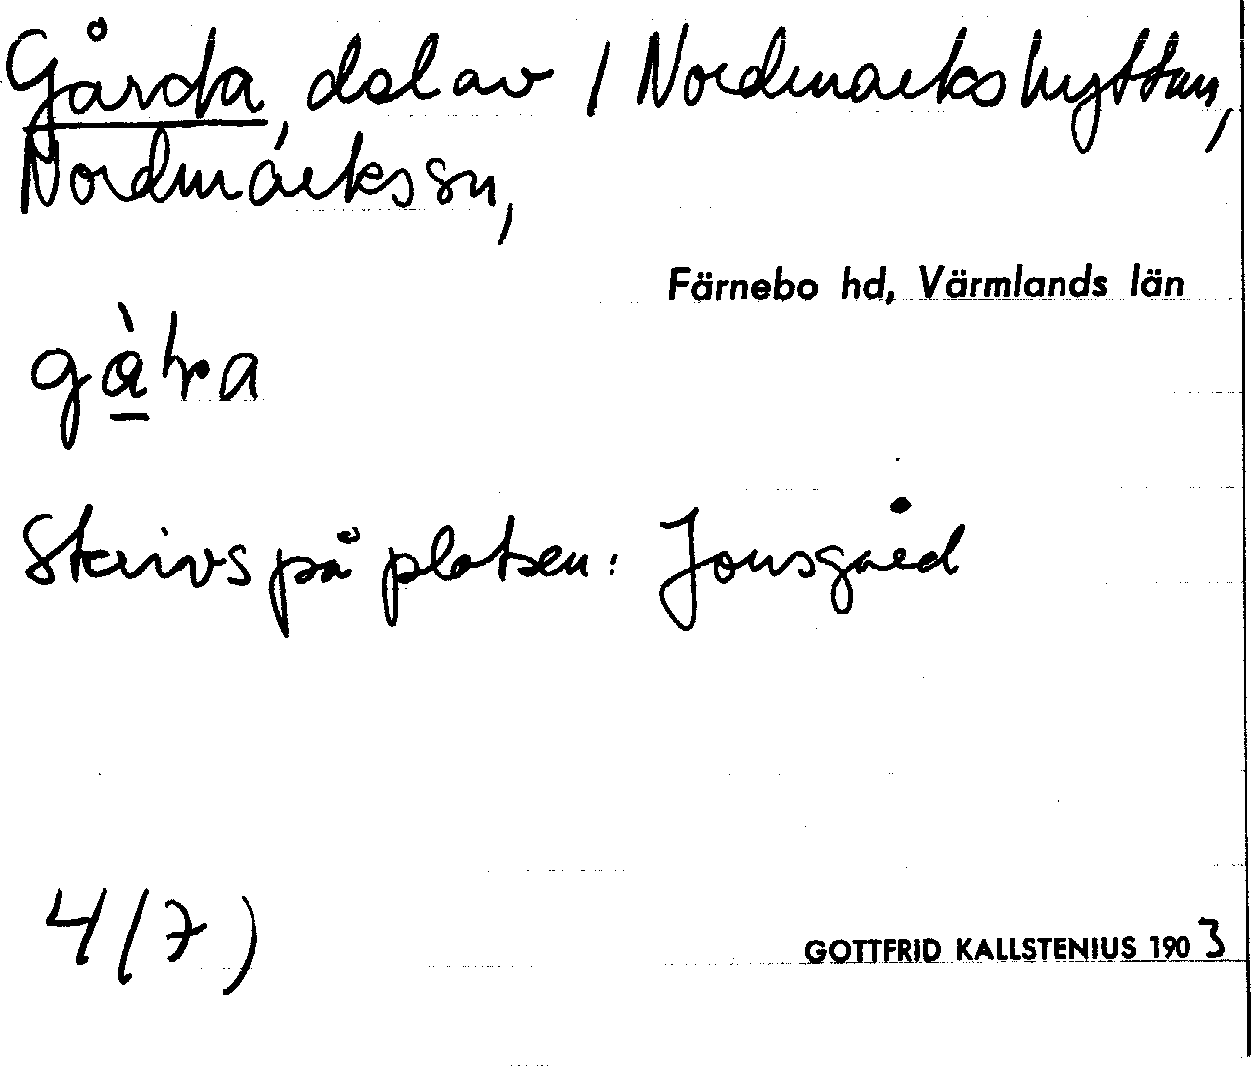 Gårda, del av / Nordmarkshyttan,
Nordmarks sn,
Färnebo hd, Värmlands län
Skrivs på platsen: Jonsgård
4 (7)
GOTTFRID KALLSTENIUS 1903